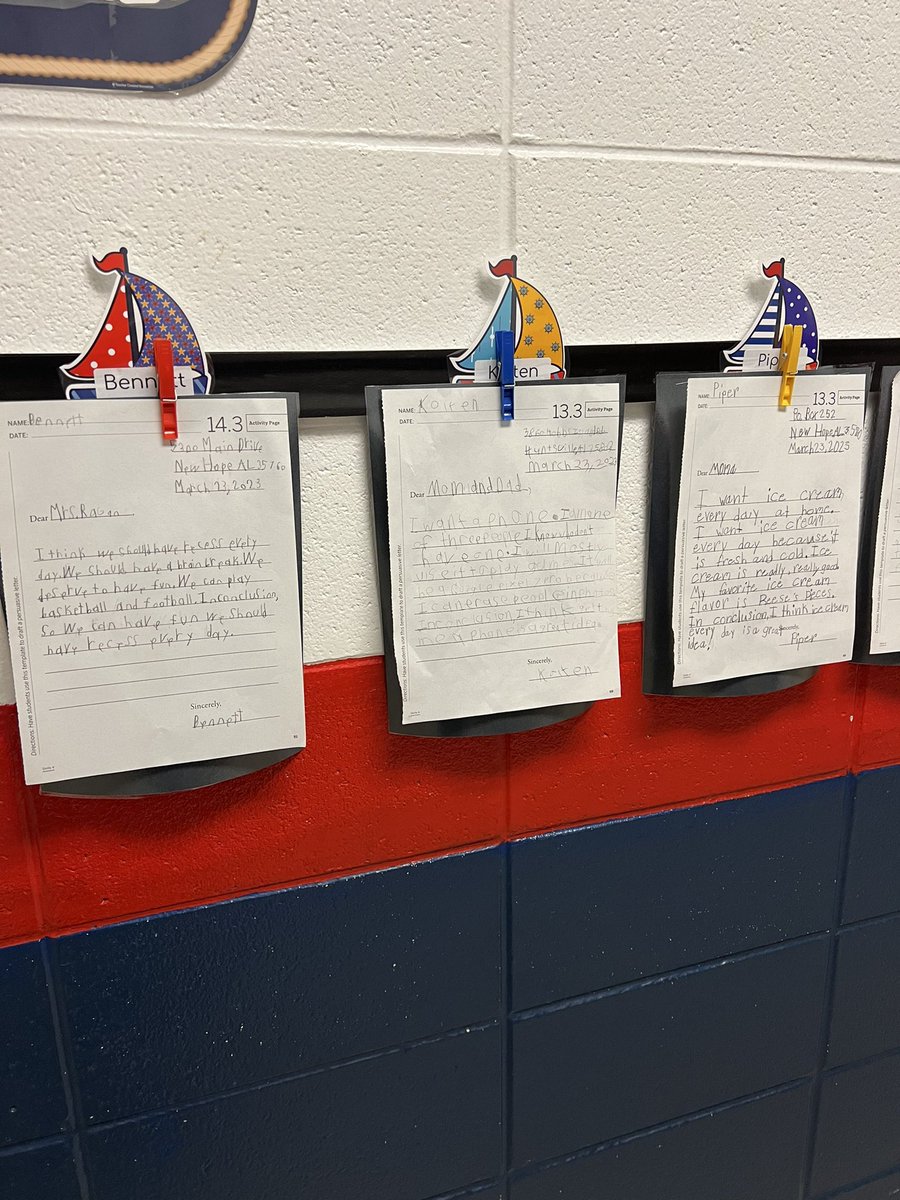 Bennett
NAME: Bennett
DATE:
14.3
Activity Page
5200 Main Drive
New Hope AL 35760
March 23, 2023
Dear Mrs. Ragan
I think we should have recess every
day. We should have a brain break. We
deserve to have fun. We can play
basketball and football. In conclusion,
so we can have fun we should
have recess every day.
Sincerely,
Bennett
Directions: Have students use this template to draft a persuasive letter.
NAME: Kolten
DATE:
13.3
Activity Page
March 23, 202
Dear Mom and Dad,
I want a phone. I'm one
of three people I know don't
have one. I will mostly
use it to play games. It will
In conclusion I think
me a phone is a great idea.
Sincerely,
Kolten
Directions: Have students use this template to draft a persuasive letter.
Piper
NAME: Piper
DATE:
13.3
Activity Page
Po Box 252
New Hope AL 35760
March 23, 2023
Dear Moma
I want ice cream
every day at home.
I want ice cream
every day because it
is fresh and cold. Ice
cream is really, really good.
My favorite ice cream
flavor is Reese's Peces.
In conclusion, I think ice cream
every day is a great
idea!
Sincerely,
Piper
Directions: Have students use this template to draft a persuasive letter.